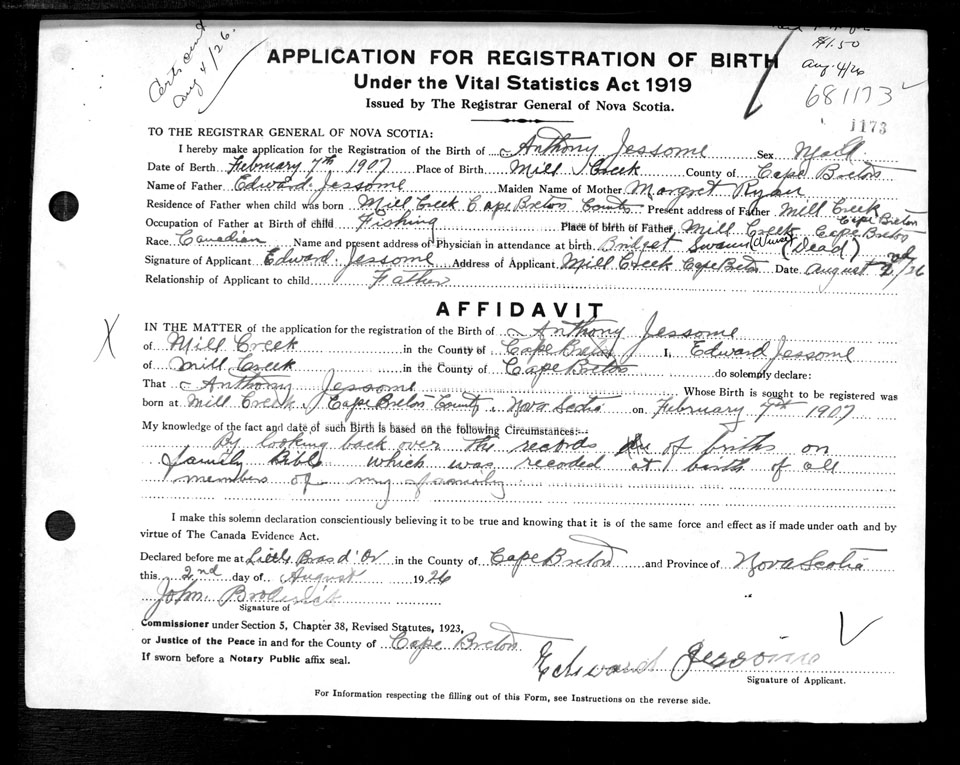 Aug 4/26.
$1.50
Aug. 4/26
681173
1173
APPLICATION FOR REGISTRATION OF BIRTH
Under the Vital Statistics Act 1919
Issued by The Registrar General of Nova Scotia.
TO THE REGISTRAR GENERAL OF NOVA SCOTIA:
I hereby make application for the Registration of the Birth of Anthony Jessome Sex
Date of Berth February 7th 1907 Place of Birth Mill Creek County of Cape Breton
Name of Father Edward Jessome Maiden Name of Mother Margret Ryan
Residence of Father when child was born Mill Creek Cape Breton County Present address of Father Mill Creek Cape Breton
Occupation of Father at Birth of child Fishing Place of birth of Father, Mill Creek Cape Breton
Race Canadian Name and present address of Physician in attendance at birth. Bridget (Nurse) (Dead)
Signature of Applicant Edward Jessome Address of Applicant Mill Creek Cape Breton Date August 2nd/26
Relationship of Applicant to child Father
AFFIDAVIT
X
IN THE MATTER of the application for the registration of the Birth of Anthony Jessome
of Mill Creek in the County of Cape Breton I, Edward Jessome
of Mill Creek in the County of Cape Breton do solemnly declare:
That Anthony Jessome Whose Birth is sought to be registered was
born at Mill Creek Cape Breton County Nova Scotia on February 7th 1907
My knowledge of the fact and date of such Birth is based on the following Circumstances:--
By looking back over the records of births on
family Bible which was recoded at birth of all
members of my family
I make this solemn declaration conscientiously believing it to be true and knowing that it is of the same force and effect as if made under oath and by
virtue of The Canada Evidence Act.
Declared before me at Little Bras d'Or in the County of Cape Breton and Province of Nova Scotia
this 2nd day of August 1926
John Broderick
Signature of
Commissioner under Section 5, Chapter 38, Revised Statutes, 1923,
or Justice of the Peace in and for the County of Cape Breton
If sworn before a Notary Public affix seal.
Edward Jessome
Signature of Applicant.
For Information respecting the filling out of this Form, see Instructions on the reverse side.